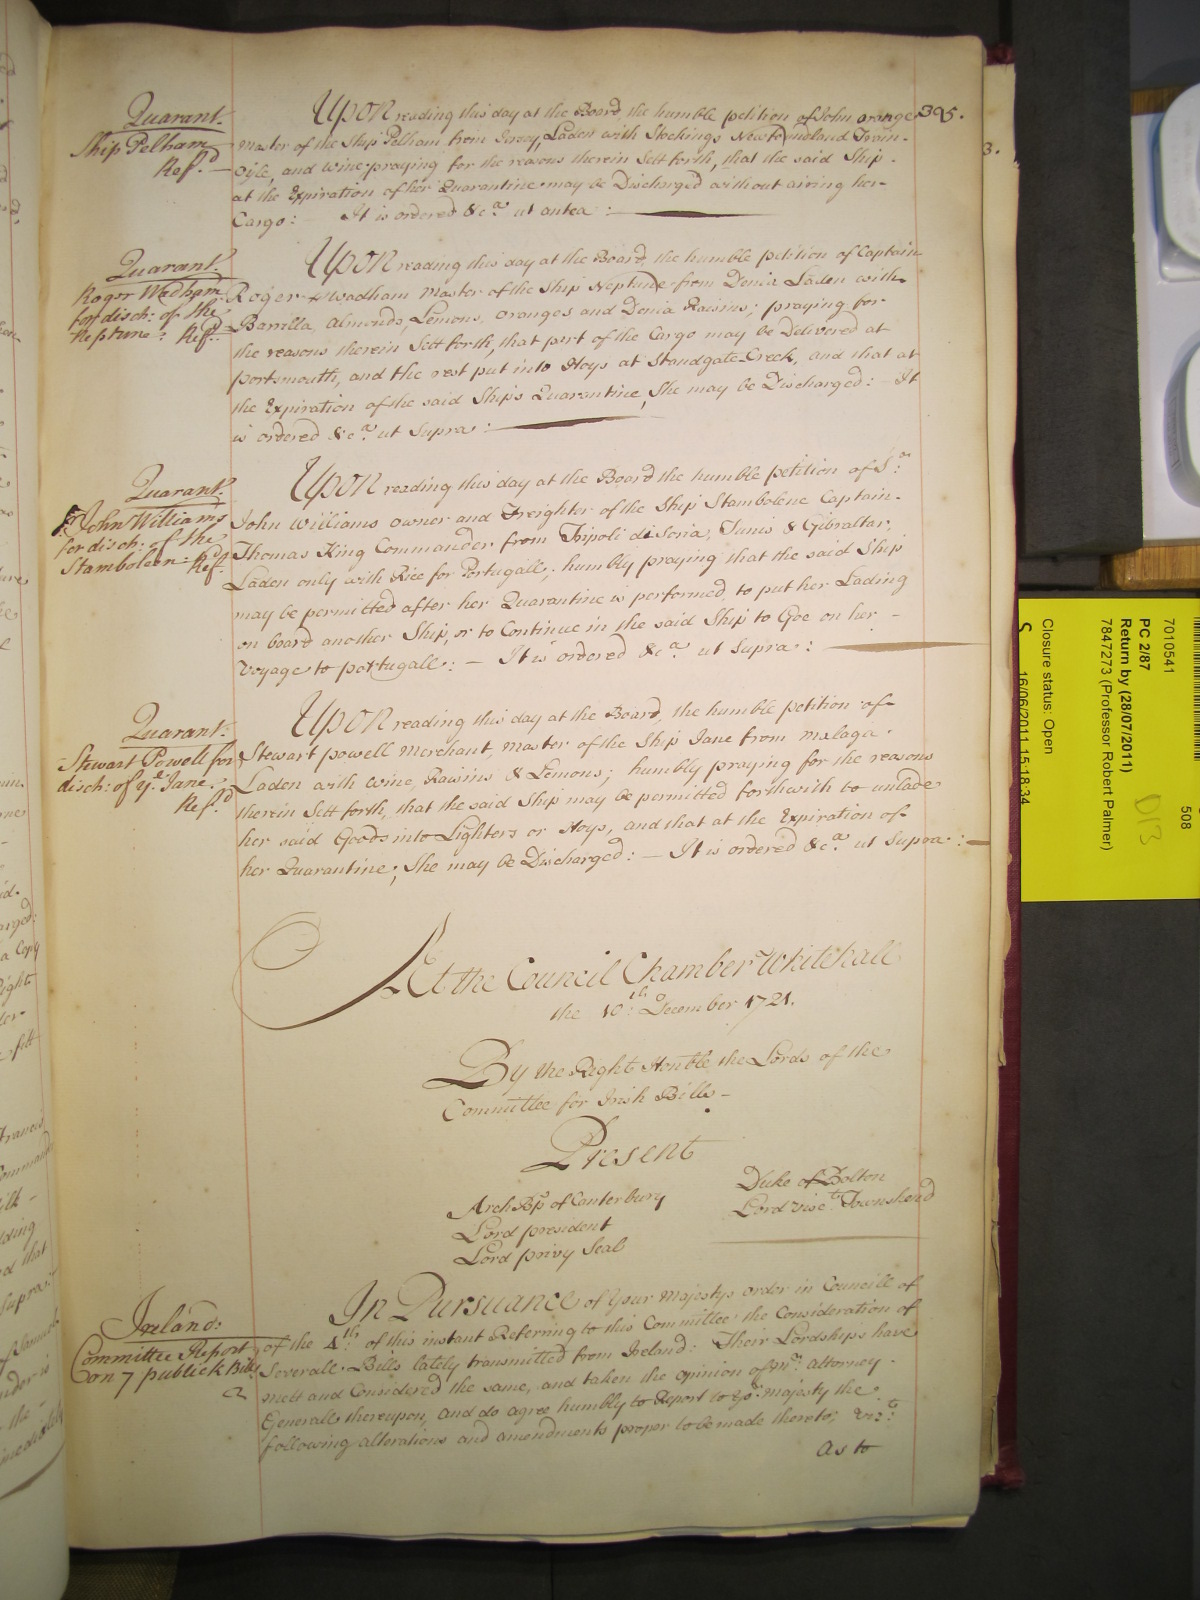 395.
Quarant:
Ship Pelham
Ref.d
Upon reading this day at the Board, the humble petition of John orange
master of the Ship Pelham from Jersey, Laden with Stockings Newfoundland Train-
Oyle, and wine praying for the reasons therein Sett forth, that the said Ship.
at the Expiration of her Quarantine may be Discharged without airing her
Cargo: It is ordered &c.a ut antea:
Quarant:
Roger Wadham
for disch: of the
Neptune: Ref.d
Upon reading this day at the Board, the humble petition of Captain
Roger Wadham master of the Ship Neptune from Denia Laden with
Barrilla, almonds, Lemons, oranges and Denia Raisins; praying for
the reasons therein Sett forth, that part of the Cargo may be Delivered at
portsmouth, and the rest put into Hoys at Standgate Creek, and that at
the Expiration of the said Ships Quarantine, She may be Discharged: - It
is ordered &c.a ut Supra:
Quarant:
John Williams
for disch: of the
Stamboleen: Ref.d
Upon reading this day at the Board the humble petition of S.r
John Williams owner and Freighter of the Ship Stambolene Captain
Thomas King Commander from Tripoli di Soria, Tunis & Gibraltar,
Laden only with Rice for Portugall; humbly praying that the said Ship
may be permitted after her Quarantine is performed, to put her Lading
on board another Ship, or to Continue in the said Ship to Goe on her
Voyage to portugall: - It is ordered &c.a ut Supra:
Quarant:
Stewart Powell for
disch: of y.e Jane:
Ref.d
Upon reading this day at the Board, the humble petition of
Stewart powell Merchant, master of the Ship Jane from malaga
Laden with wine Raisins & Lemons; humbly praying for the reasons
therein Sett forth, that the said Ship may be permitted forthwith to unlade
her said Goods into Lighters or Hoys, and that at the Expiration of
her Quarantine; She may be Discharged: - It is ordered &c.a ut Supra:
At the Council Chamber Whitehall
the 10.th December 1721.
By the Right Honble the Lords of the
Committee for Irish Bills -
Present
Arch Bp of Canterbury
Lord president
Lord privy Seal
Duke of Bolton
Lord Visc.t Townshend
Ireland:
Committee Report
on 7 publick Bills
In Pursuance of Your Majestys order in Councill of
of the 4.th of this instant Referring to this Committee the Consideration of
Severall Bills lately transmitted from Ireland: Their Lordships have
mett and Considered the same, and taken the opinion of M.r attorney
Generall thereupon, and do agree humbly to Report to yo.r majesty the
following alterations and amendments proper to be made thereto, viz.t
as to
3.
7010541
PC 2/87
Return by (28/07/2011)
7847273 (Professor Robert Palmer)
Closure status: Open
S
16/06/2011 15:18:34
508
D13